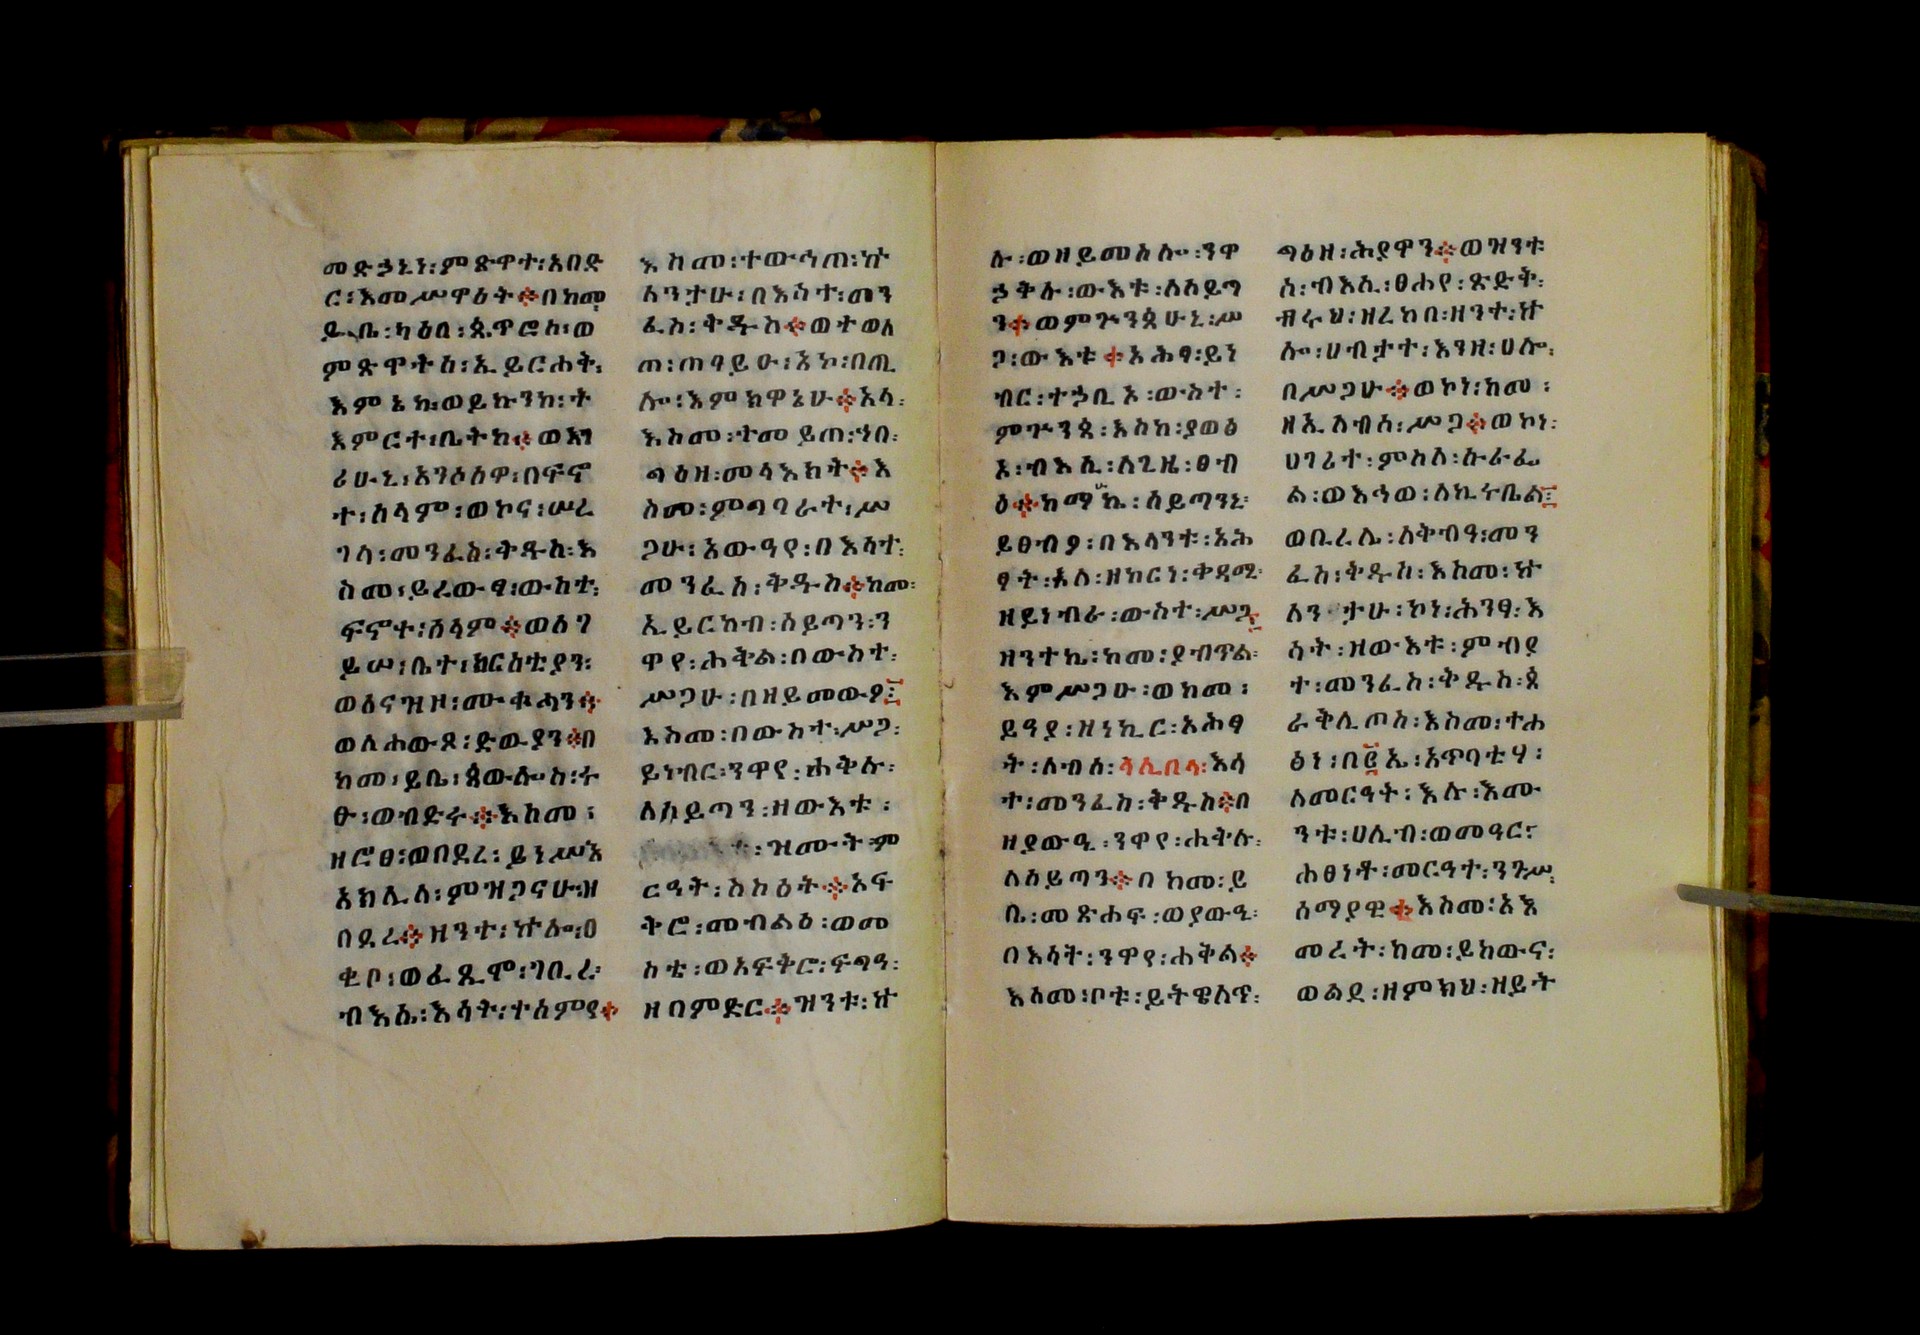 መድኃኒነ፡ምጽዋተ፡አበድ
ር፡እመሥዋዕት።በከመ
ይቤ፡ካዕበ፡ጴጥሮስ፡ወ
ምጽዋትሰ፡ኢይርሐቅ፡
እምኔክ፡ወይኩንከ፡ት
እምርተ፡ቤትከ።ወእገ
ሪሁኒ፡አንሶሰዋ፡በፍኖ
ተ፡ሰላም፡ወኮና፡ሠረ
ገላ፡መንፈስ፡ቅዱስ፡እ
ስመ፡ይረውፃ፡ውስተ፡
ፍኖተ፡ሰላም።ወለገ
ይሠ፡ቤተ፡ክርስቲያን፡
ወለናዝዞ፡ሙቁሓን።
ወለሐውጾ፡ድውያን።በ
ከመ፡ይቤ፡ጳውሎስ፡ተ
ፁ፡ወብድሩ።እስመ፡
ዘሮፀ፡ወበደረ፡ይነሥእ
አክሊለ፡ምዝጋናሁ፡ዝ
በደረ።ዘንተ፡ኵሎ፡ዐ
ቂቦ፡ወፈጺሞ፡ገቢረ፡
ብእሲ፡እሳት፡ተሰምየ።
እስመ፡ተውኅጠ፡ኵ
ለንታሁ፡በእሳተ፡መን
ፈስ፡ቅዱስ።ወተወለ
ጠ፡ጠባይዑ፡አኮ፡በጢ
ሎ፡እምክዋኔሁ።አላ፡
እስመ፡ተመይጠ፡ኀበ፡
ጣዕዘ፡መላእክት።እ
ስመ፡ምግባራት፡ሥ
ጋሁ፡አውዓየ፡በእሳተ፡
መንፈስ፡ቅዱስ።ከመ፡
ኢይርከብ፡ሰይጣን፡ን
ዋየ፡ሐቅል፡በውስተ፡
ሥጋሁ፡በዘይመውዖ፤
እስመ፡በውስተ፡ሥጋ፡
ይነብር፡ንዋየ፡ሐቅሉ፡
ለሰይጣን፡ዘውእቱ፡
ዝሙት፡ም
ርዓት፡ስስዕት።አፍ
ቅሮ፡መብልዕ፡ወመ
ስቴ፡ወአፍቅሮ፡ፍግዓ፡
ዘበምድር።ዝንቱ፡ኵ
ሉ፡ወዘይመስሎ፡ንዋ
ኃቅሉ፡ውእቱ፡ለሰይጣ
ን።ወምጕንጳሁኒ፡ሥ
ጋ፡ውእቱ።አሕፃ፡ይነ
ብር፡ተኃቢኦ፡ውስተ፡
ምጕንጳ፡እስከ፡ያወፅ
እ፡ብእሲ፡ለጊዜ፡ፀብ
ዕ።ከማሁኬ፡ሰይጣንኒ፡
ይፀብዖ፡በእላንቱ፡አሕ
ፃት፡እለ፡ዘከርነ፡ቀዳሚ፡
ዘይነብራ፡ውስተ፡ሥጋ፤
ዘንተኬ፡ከመ፡ያብጥል፡
እምሥጋሁ፡ወከመ፡
ይዓያ፡ዘነኪር፡አሕፃ
ት፡ለብሰ፡ላሊበላ፡እሳ
ተ፡መንፈስ፡ቅዱስ።በ
ዘያውዒ፡ንዋየ፡ሐቅሉ፡
ለሰይጣን።በከመ፡ይ
ቤ፡መጽሐፍ፡ወያውዒ፡
በእሳት፡ንዋየ፡ሐቅል።
እስመ፡ቦቱ፡ይትዌለጥ፡
ጣዕዘ፡ሕያዋን።ወዝንቱ
ሰ፡ብእሲ፡ፀሐየ፡ጽድቅ፡
ብሩህ፡ዘረከበ፡ዘንተ፡ኵ
ሎ፡ሀብታተ፡እንዘ፡ሀሎ፡
በሥጋሁ።ወኮነ፡ከመ፡
ዘኢለብሰ፡ሥጋ።ወኮነ፡
ሀገሪተ፡ምስለ፡ሱራፌ
ል፡ወእኅወ፡ለኪሩቤል፤
ወቢረሌ፡ለቅብዓ፡መን
ፈስ፡ቅዱስ፡እስመ፡ኵ
ለንታሁ፡ኮነ፡ሕንፃ፡እ
ሳት፡ዘውእቱ፡ምብያ
ተ፡መንፈስ፡ቅዱስ፡ጰ
ራቅሊጦስ፡እስመ፡ተሐ
ፅነ፡በ፪ኤ፡አጥባቲሃ፡
ለመርዓት፡እሉ፡እሙ
ንቱ፡ሀሊብ፡ወመዓር፡
ሐፀነቶ፡መርዓተ፡ንጉሥ፡
ሰማያዊ።እስመ፡አእ
መረት፡ከመ፡ይከውና፡
ወልደ፡ዘምክህ፡ዘይት